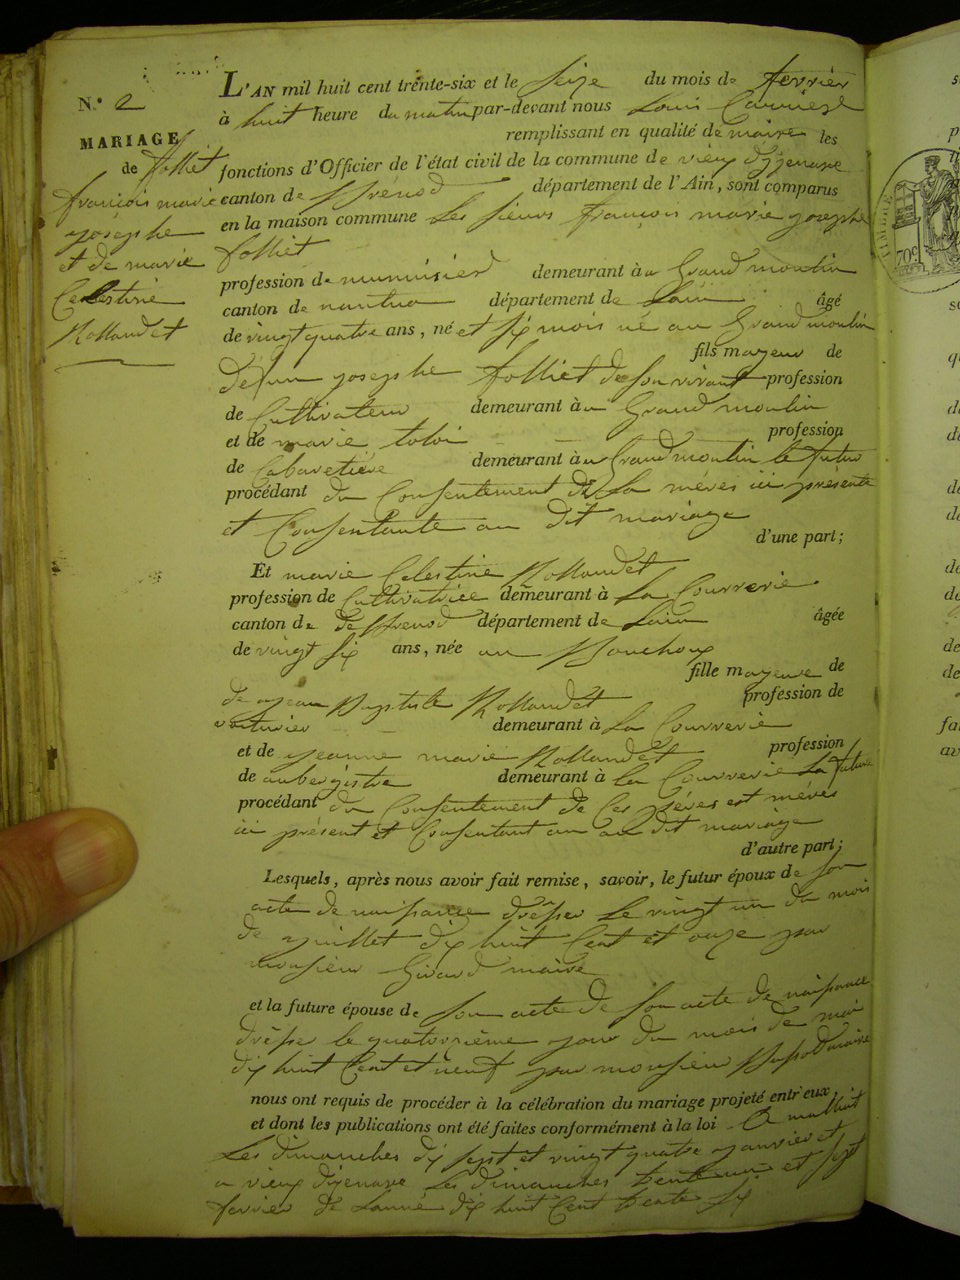 N.° 2
MARIAGE
de folliet
françois marie
josephe
et de marie
Celestine
Rollandet
L'AN mil huit cent trente-six et le seize du mois de fevrier
à huit heure du matin par-devant nous Louis
remplissant en qualité de maire les
fonctions d'Officier de l'état civil de la commune de vieux d'izenave
canton de Brenod département de l'Ain, sont comparus
en la maison commune Les sieurs françois marie josephe
folliet
profession de menuisier demeurant à au Grand moulin
canton de nantua département de Lain âgé
de vingt quatre ans, né et six mois né au Grand moulin
fils mayeur de
défun josephe folliet de son vivant profession
de Cultivateur demeurant à au Grand moulin
et de marie profession
de Cabaretière demeurant à au Grand moulin le futur
procédant du Consentement de La mères ici présente
et Consentante au dit mariage
d'une part;
Et marie Celestine Rollandet
profession de Cultivatrice demeurant à La Courrerie
canton de de Brenod département de Lain âgée
de vingt six ans, née au Bouchoux
fille mayeure de
de jean Baptiste Rollandet profession de
voiturier demeurant à La Courrerie
et de jeanne marie Rollandet profession
de aubergiste demeurant à la Courrerie La future
procédant du Consentement de Ces pères est mères
ici présent et Consentant au au dit mariage
d'autre part;
Lesquels, après nous avoir fait remise, savoir, le futur époux de son
acte de naissance dresser Le vingt un du mois
de juillet dix huit Cent et onze par
monsieur Girard maire
et la future épouse de son acte de son acte de naissance
dresser le quatorzième jour du mois de mai
dix huit Cent et neuf par monsieur maire
nous ont requis de procéder à la célébration du mariage projeté entr'eux,
et dont les publications ont été faites conformément à la loi
Les dimanches dix sept et vingt quatre janvier et
a vieux d'izenave Les dimanches trente un et sept
fevrier de Lanné dix huit Cent trente six
TIMBRE
70c